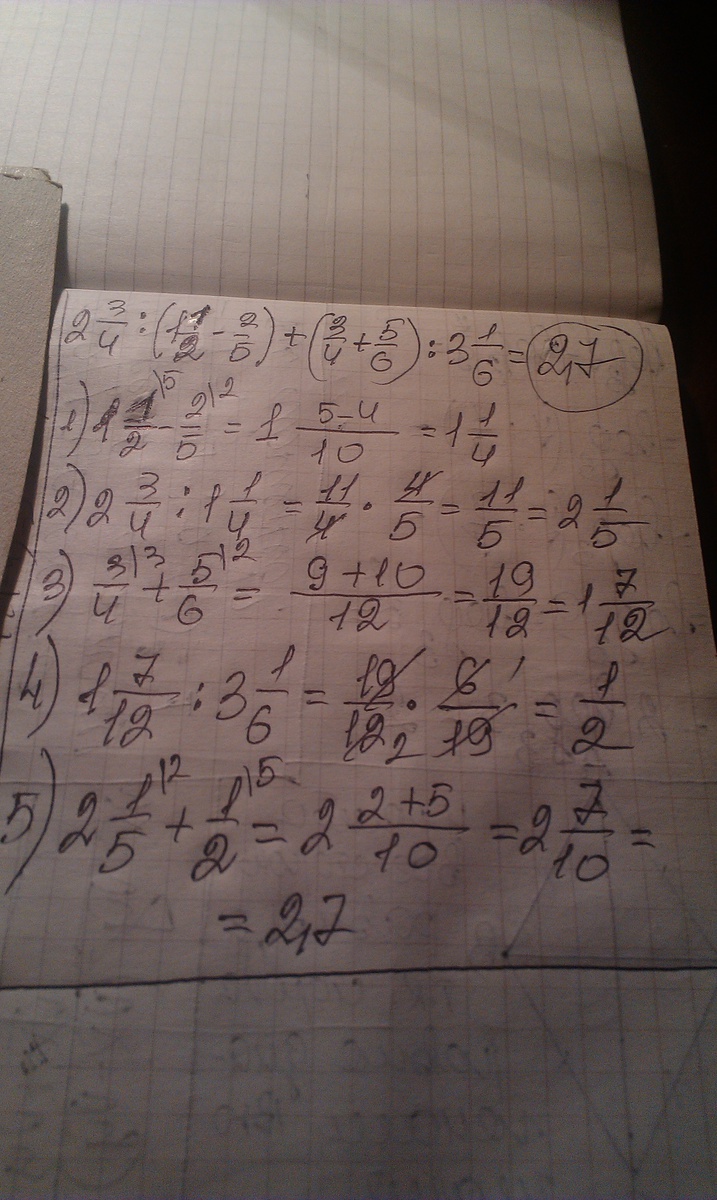 2 3/4 : (1 1/2 - 2/5) + (3/4 + 5/6) : 3 1/6 = 2,7
1) 1 1/2 \5 - 2/5 \2 = 1 (5-4)/10 = 1 1/4
2) 2 3/4 : 1 1/4 = 11/4 · 4/5 = 11/5 = 2 1/5
3) 3/4 \3 + 5/6 \2 = (9+10)/12 = 19/12 = 1 7/12
4) 1 7/12 : 3 1/6 = 19/12 2 · 6/19 1 = 1/2
5) 2 1/5 \2 + 1/2 \5 = 2 (2+5)/10 = 2 7/10 =
= 2,7